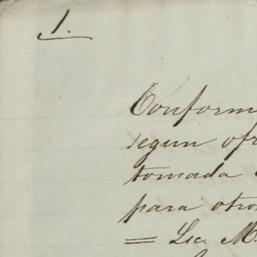 1.
Conform
segun ofr
tomada
para otro
= Lic. M